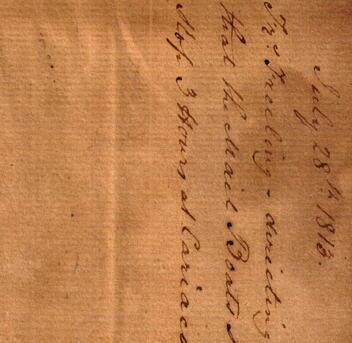 July 28th 1813.
Fr. Freeling - directing
that the Mail Boats
Stop 3 Hours at Cariaco